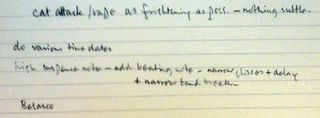 cat attack/rape as frightening as poss. – nothing subtle.
do various time dates
high suspense note – add beating note – narrow glisses + delay
+ narrow band breath.
Belasco